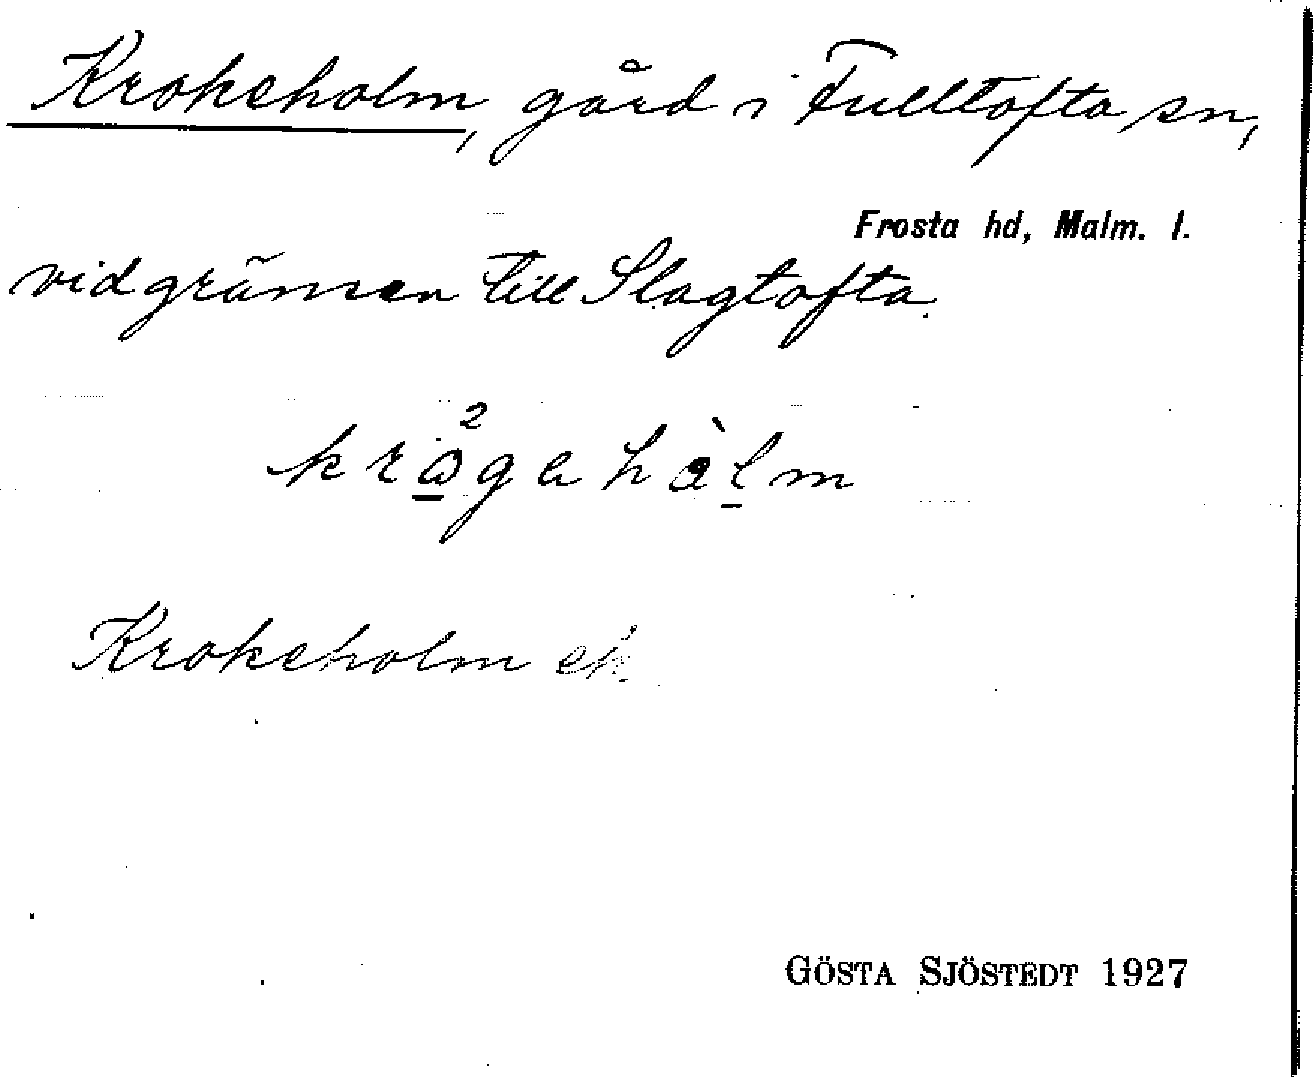 Krokeholm, gård i Fulltofta sn,
Frosta hd, Malm. l.
vid gränsen till Slagtofta.
krågehàlm
Krokeholm ek.
GÖSTA SJÖSTEDT 1927